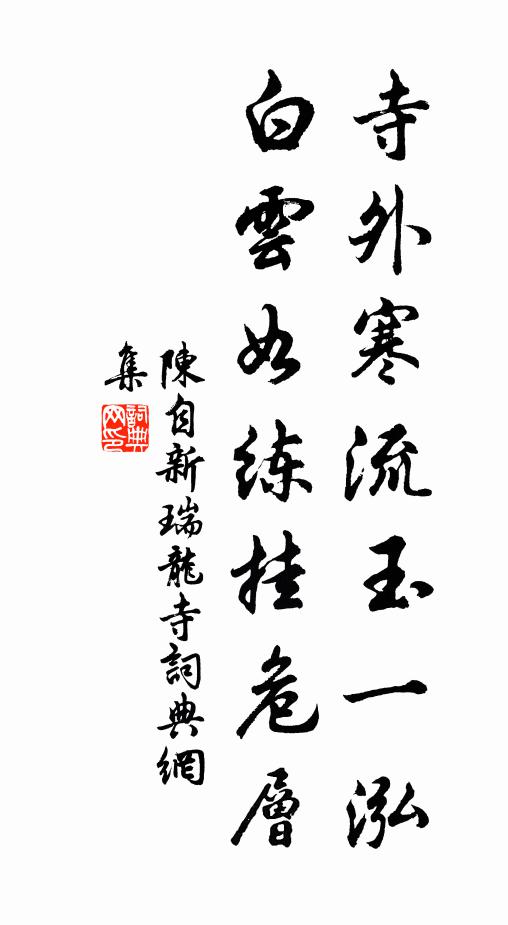 寺外寒流玉一泓
白雲如練挂危層
陳自新瑞龍寺詞典網
集
詞典网印